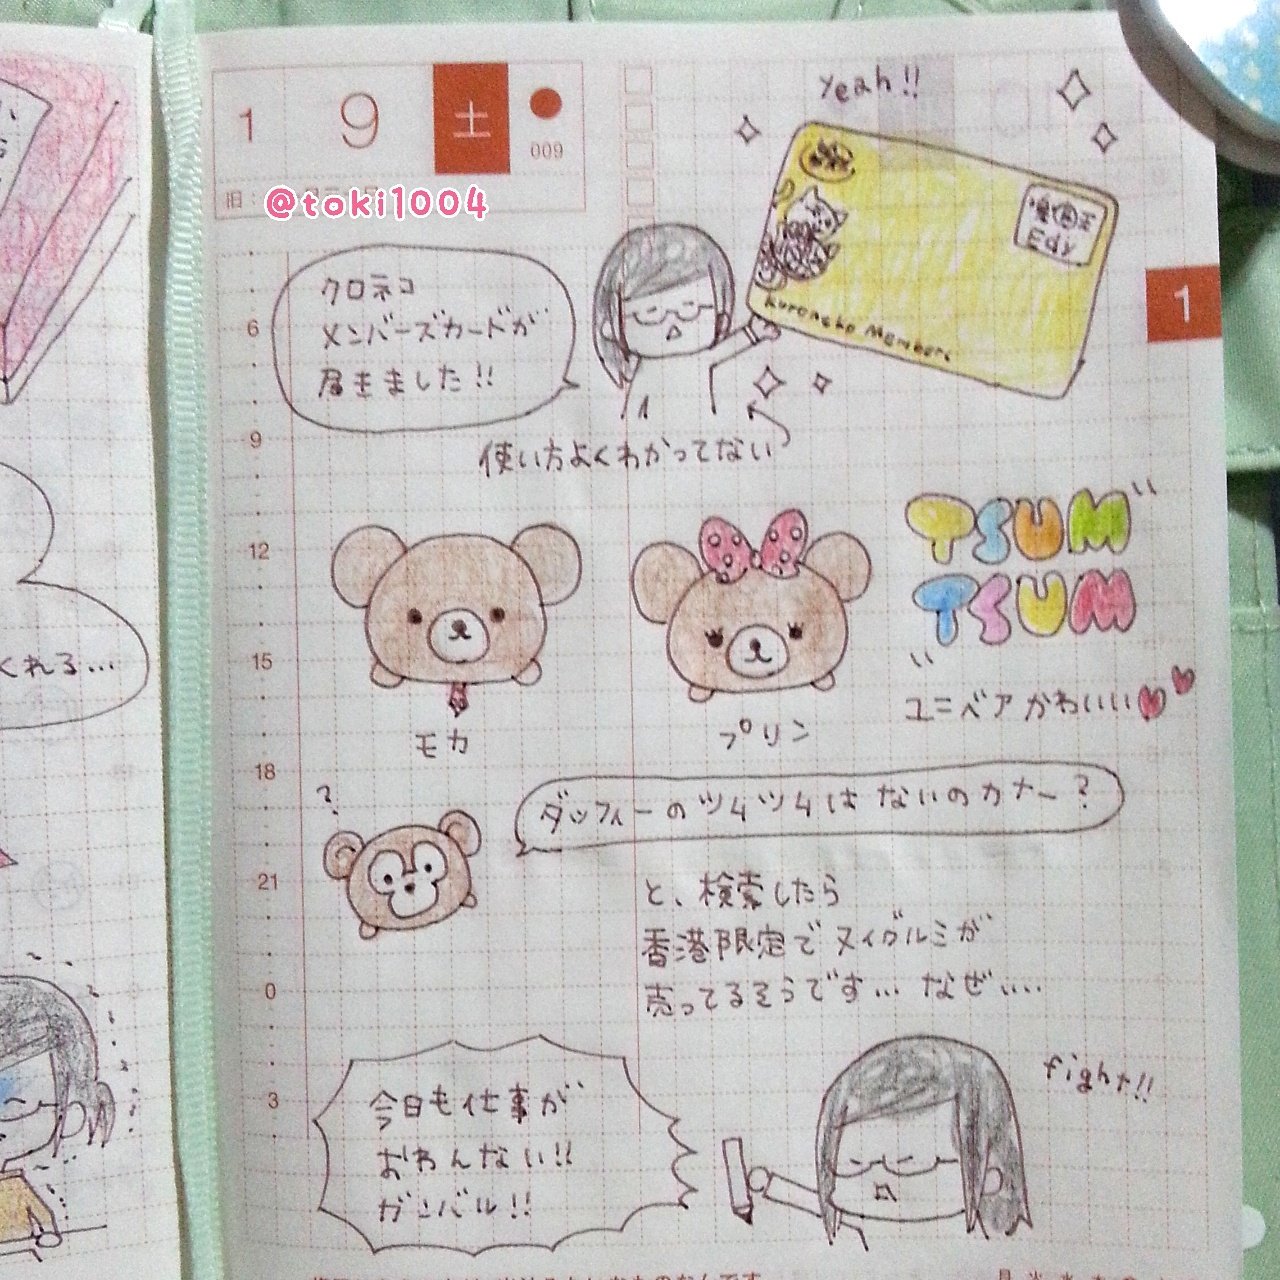 くれる…
1 9 土
009
旧
@toki1004
yeah!!
Edy
kuroneko Members
クロネコ
メンバーズカードが
届きました!!
使い方よくわかってない
1
6
9
12
15
18
21
0
3
TSUM
TSUM
ユニベアかわいい
モカ
プリン
?
ダッフィーのツムツムはないのカナー?
と、検索したら
香港限定でヌイグルミが
売ってるそうです… なぜ….
今日も仕事が
おわんない!!
ガンバル!!
fight!!